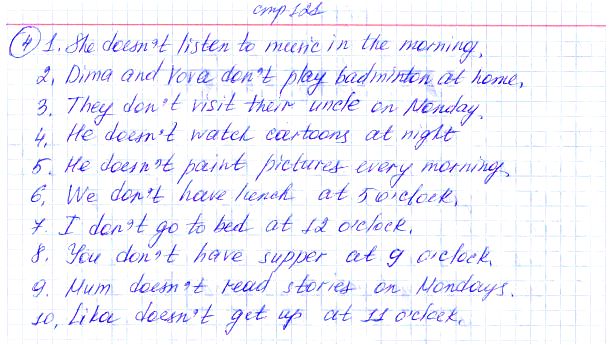 стр 121
4 1. She doesn't listen to music in the morning.
2. Dima and Vova don't play badminton at home.
3. They don't visit their uncle on Monday.
4. He doesn't watch cartoons at night
5. He doesn't paint pictures every morning.
6. We don't have lunch at 5 o'clock.
7. I don't go to bed at 12 o'clock.
8. You don't have supper at 9 o'clock.
9. Mum doesn't read stories on Mondays.
10. Lika doesn't get up at 11 o'clock.